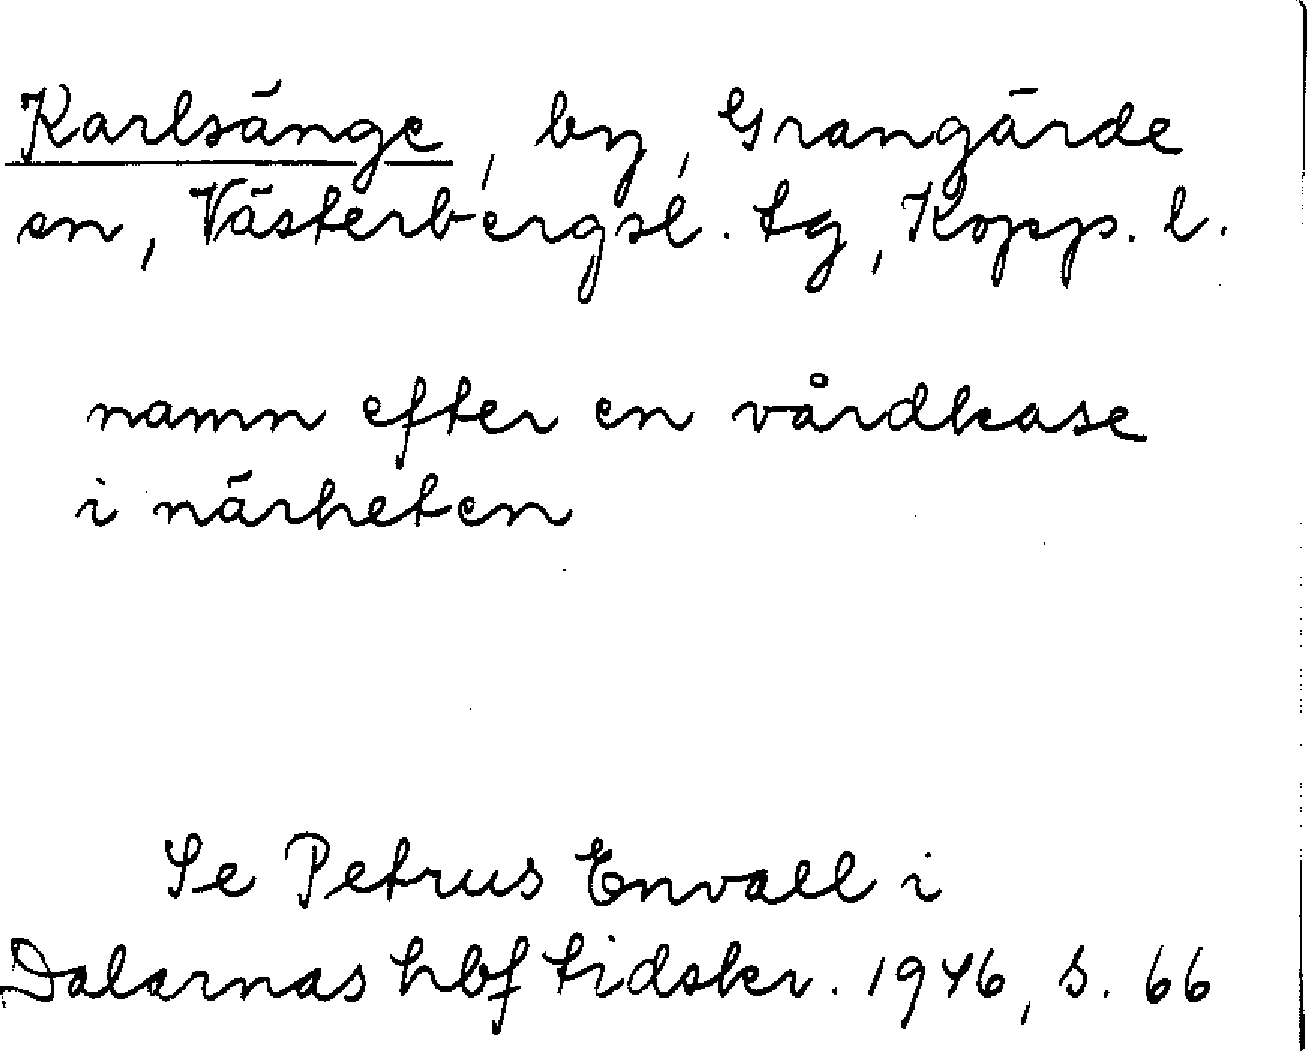 Karlsänge, by, Grangärde
sn, Västerbergsl. tg, Kopp. l.
namn efter en vårdkase
i närheten
Se Petrus Envall i
Dalarnas hbf tidskr. 1946, s. 66